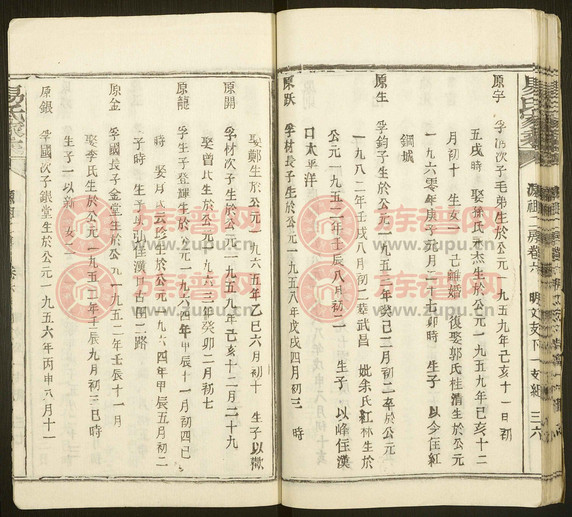 易氏家乘
祖 房卷六 明文支下一支組 三六
原宇 孚 次子毛弟生於公元一九五九年己亥十一日初
五戌時 娶徐氏 杰生於公元一九五九年己亥十二
月初十 生女一 己離婚 復娶郭氏桂清生於公元
一九六零年庚子 月二十 卯時 生子一 以今住紅
鋼城
原生 孚鈞子生於公元一九五三年癸巳二月初二卒於公元
一九八二年壬戌八月初二葬武昌 妣余氏紅林生於
公元一九五二年壬辰八月初一 生子一 以峰住漢
口太平洋
原跃 孚材長子生於公元一九五八年戊戌四月初三 時
娶鄭生於公元一九六五年乙巳六月初十 生子以
原開 孚材次子生於公元一九五九年己亥十二月二十九
娶曾 生於公元一九六三年癸卯二月初七
原龍 孚生子登輝生於公元一九六四年甲辰十一月初四巳
時 娶 氏云珍生於公元一九六四年甲辰五月初二
子時 生子一 住漢口古田二路
原金 孚國長子金堂生於公元一九五二年壬辰十一月
娶李氏生於公元一九五二年壬辰九月初三巳時
生子一以新 女二
原銀 孚國次子銀堂生於公元一九五六年丙申六月十一
易氏家乘
族譜网
www.zupu.cn
族譜网
www.zupu.cn
族譜网
www.zupu.cn
族譜网
www.zupu.cn